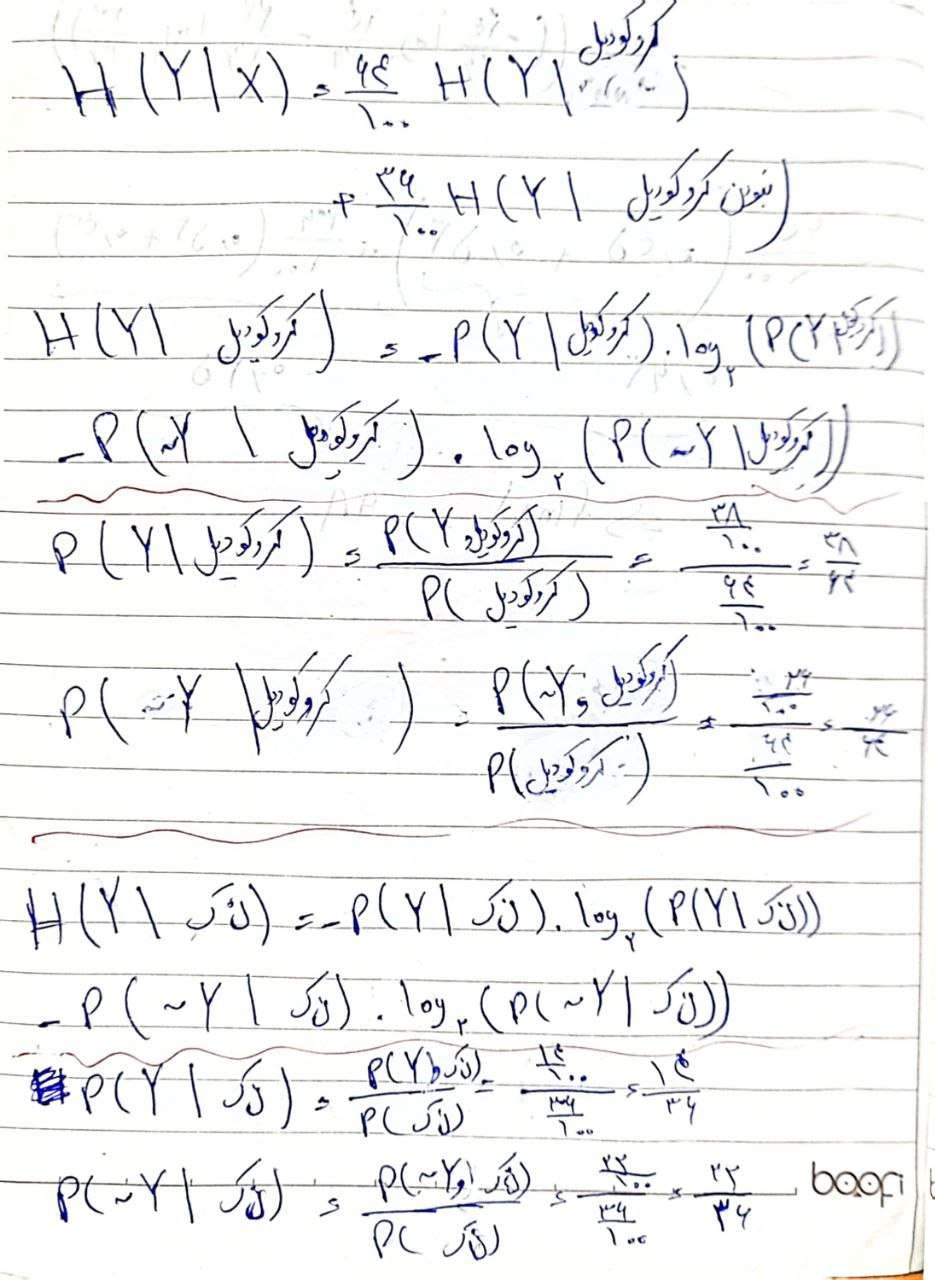 H(Y|X) = ۶۴/۱۰۰ H(Y| کروکودیل)
+ ۳۶/۱۰۰ H(Y| نبودن کروکودیل)
H(Y| کروکودیل) = -P(Y|کروکودیل).log۲(P(Y|کروکودیل))
-P(~Y | کروکودیل).log۲(P(~Y|کروکودیل))
P(Y|کروکودیل) = P(Y و کروکودیل)/P(کروکودیل) = (۳۸/۱۰۰)/(۶۴/۱۰۰) = ۳۸/۶۴
P(~Y|کروکودیل) = P(~Y و کروکودیل)/P(کروکودیل) = (۲۶/۱۰۰)/(۶۴/۱۰۰) = ۲۶/۶۴
H(Y| ن ک) = -P(Y| ن ک).log۲(P(Y| ن ک))
-P(~Y| ن ک).log۲(P(~Y| ن ک))
P(Y| ن ک) = P(Y و ن ک)/P(ن ک) = (۱۴/۱۰۰)/(۳۶/۱۰۰) = ۱۴/۳۶
P(~Y| ن ک) = P(~Y و ن ک)/P(ن ک) = (۲۲/۱۰۰)/(۳۶/۱۰۰) = ۲۲/۳۶